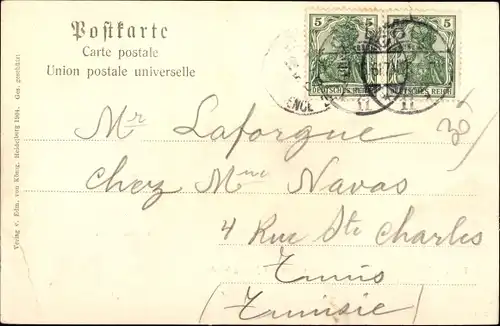 Postkarte
Carte postale
Union postale universelle
5 5
DEUTSCHES REICH DEUTSCHES REICH
Mr Laforgue
chez Mme Navas
4 Rue Ste Charles
Tunis
(Tunisie)
Verlag v. Edm. von König, Heidelberg 1904. Ges. geschützt